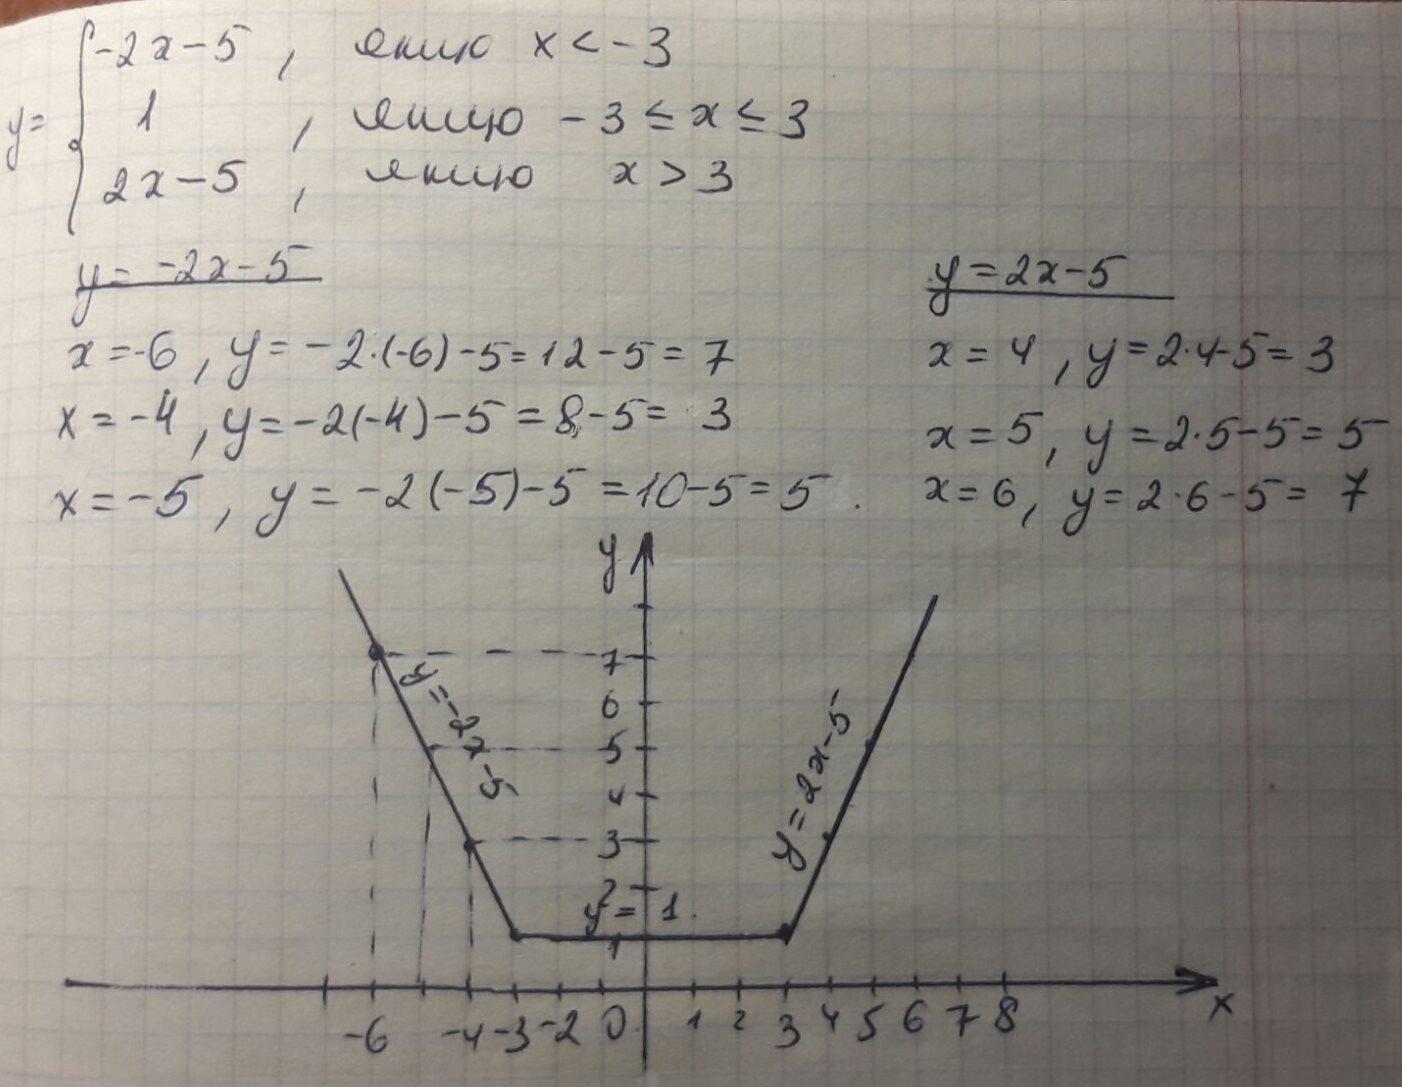 y= { -2x-5 , якщо x < -3
1 , якщо -3 ≤ x ≤ 3
2x-5 , якщо x > 3
y= -2x-5
x=-6 , y= -2·(-6)-5=12-5=7
x=-4 , y=-2(-4)-5=8-5= 3
x=-5 , y= -2(-5)-5=10-5=5 .
y=2x-5
x=4 , y=2·4-5=3
x=5 , y=2·5-5=5
x=6 , y=2·6-5= 7
y
7
6
5
4
3
2
1
y=-2x-5
y=2x-5
y= 1.
-6 -4 -3 -2 0 1 2 3 4 5 6 7 8 x